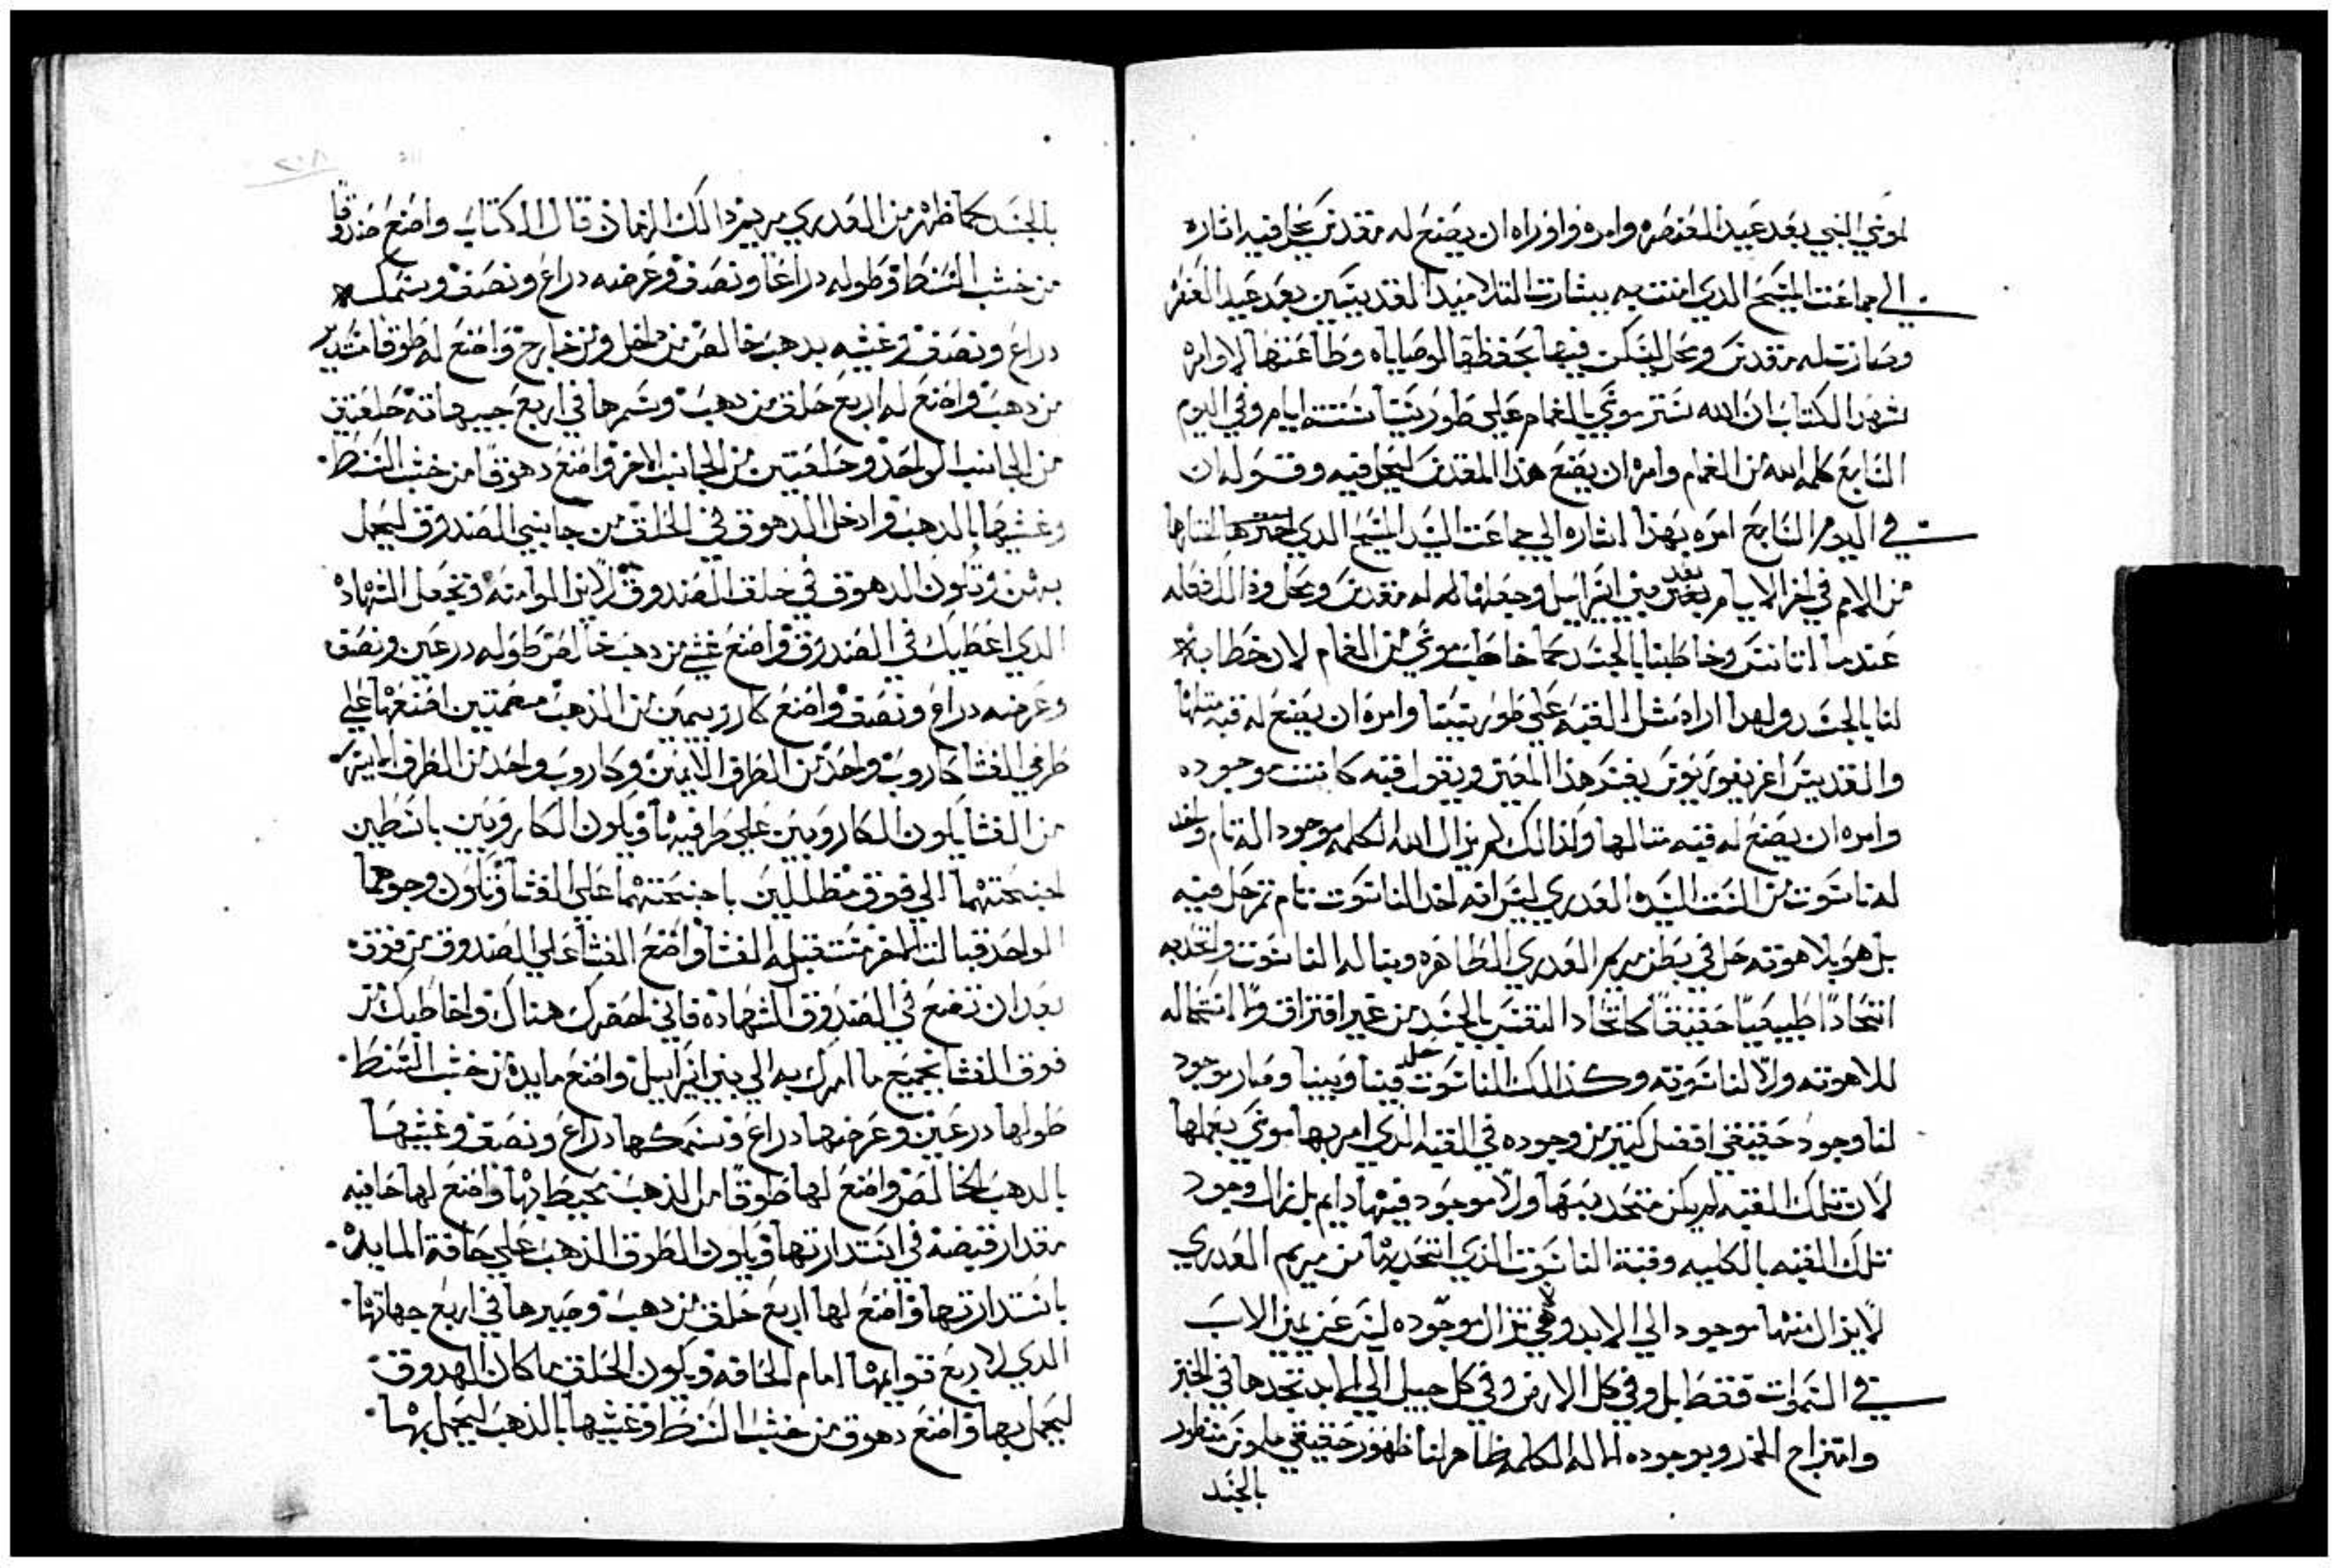 لموسي النبي بعد عيد العنصره وامره واوراه ان يصنع له مقدس يحل فيه اشاره
الي جماعت المسيح الدي امنت به ببشارت التلاميد القديسين بعد عيد العنصره
وصارت له مقدس ومحل ليسكن فيها بحفظها لوصاياه وطاعتها لاوامره
شهد الكتاب ان الله ستر موسي بالغمام علي طور سينا ستت ايام وفي اليوم
السابع كلمه الله من الغمام وامره ان يصنع هدا المقدس ليحل فيه وقوله ان
في اليوم السابع امره بهدا اشاره الي جماعت السيد المسيح الدي اختارها
من الامم في اخر الايام بعد بني اسراييل وجعلها له مقدس ومحل ودالك فعله
عندما اتانس وخاطبنا بالجسد كما خاطب موسي من الغمام لان خطابه
لنا بالجسد ولهدا اراه مثل القبه علي طور سينا وامره ان يصنع له قبه مثلها
والقديس اغريغوريوس يفسر هدا المعني ويقول قبه كانت موجوده
وامره ان يصنع له قبه مثالها ولدالك لم يزال الله الكلمه موجود اله تام واخد
له ناسوت من الست السيده العدري ليس انه اخد الناسوت تام ثم حل فيه
بل هو بلاهوته حل في بطن مريم العدري الطاهره وبنا له الناسوت واتحد به
اتحادًا طبيعيًا حقيقًا كاتحاد النفس بالجسد من غير افتراق ولا استحاله
للاهوته ولا لناسوته وكدالك الناسوت حل فينا وبيننا وصار موجود
لنا وجود حقيقي افضل كتير من وجوده في القبه الدي امر بها موسي بعملها
لان تلك القبه لم يكن متحد بها ولا موجود فيها دايم بل زال وجود
تلك القبه بالكليه وقبة الناسوت الدي اتحد بها من مريم العدري
لا يزال منها موجود الي الابد وهي لا تزال موجوده ليس عن يمين الاب
في السموات فقط بل وفي كل الارض وفي كل جيل الي الابد تجدها في الخبز
وامتزاج الخمر وبوجوده الاله الكلمه ظاهر لنا ظهور حقيقي ملموس منظور
بالجسد
بالجسد كما ظهر من العدري مريم في دالك الزمان قال الكتاب واصنع صندوقا
من خشب السنط وطوله دراعا ونصف وعرضه دراع ونصف وسمكه
دراع ونصف وغشيه بدهب خالص من داخل ومن خارج واصنع له طوقا مستدير
من دهب واصنع له اربع حلق من دهب وسمرها في اربع جهاته حلقتين
من الجانب الواحد وحلقتين من الجانب الاخر واصنع دهوقًا من خشب السنط
وغشيها بالدهب وادخل الدهوق في الحلق من جانبي الصندوق ليحمل
بهن وتكون الدهوق في حلق الصندوق وتجعل الشهادة
الدي اعطيك في الصندوق واصنع غشي من دهب خالص طوله درعين ونصف
وعرضه دراع ونصف واصنع كاروبيمين من الدهب مصمتين اصنعها علي
طرفي الغشا كاروب واحد من الطرف الايمن وكاروب واحد من الطرف الايسر
من الغشا يكون الكاروبين علي طرفيها ويكون الكاروبين باسطين
اجنحتهما الي فوق مظللين باجنحتهما علي الغشا وتكون وجوهما
الواحد قبالت الاخر مستقبله الغشا واصنع الغشا علي الصندوق من فوقه
بعد ان تضع في الصندوق الشهاده فاني احضرك هناك واخاطبك من
فوق الغشا بجميع ما امرك به الي بني اسراييل واصنع مايدة من خشب السنط
طولها درعين وعرضها دراع وسمكها دراع ونصف وغشيها
بالدهب الخالص واصنع لها طوقًا من الدهب محيط بها واصنع لها حافيه
مقدار قبضه في استدارتها ويكون الطوق الدهب علي حافة المايدة
باستدارتها واصنع لها اربع حلق من دهب وصيرها في اربع جهاتها
الدي لاربع قوايمها امام الحافه ويكون الحلق مكان الدهوق
ليحمل بها واصنع دهوق من خشب السنط وغشيها بالدهب ليحمل بها